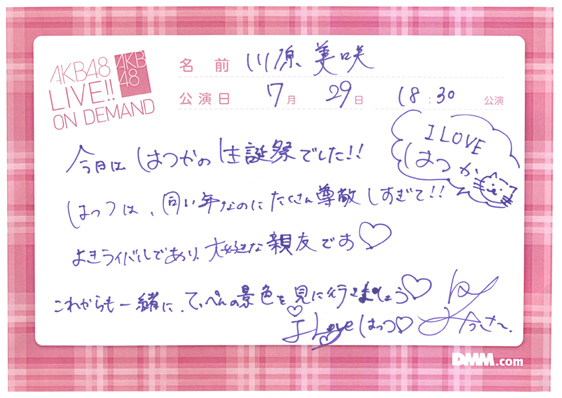 AKB48
LIVE!!
ON DEMAND
AKB
48
名前 川原美咲
公演日 7月 29日 18:30 公演
I LOVE
はつか
今日は はつかの生誕祭でした!!
はっつは、同い年なのにたくさん尊敬しすぎて!!
よきライバルであり、大好きな親友です♡
これからも一緒に、てっぺんの景色を見に行きましょう♡
I love はっつ♡
DMM.com